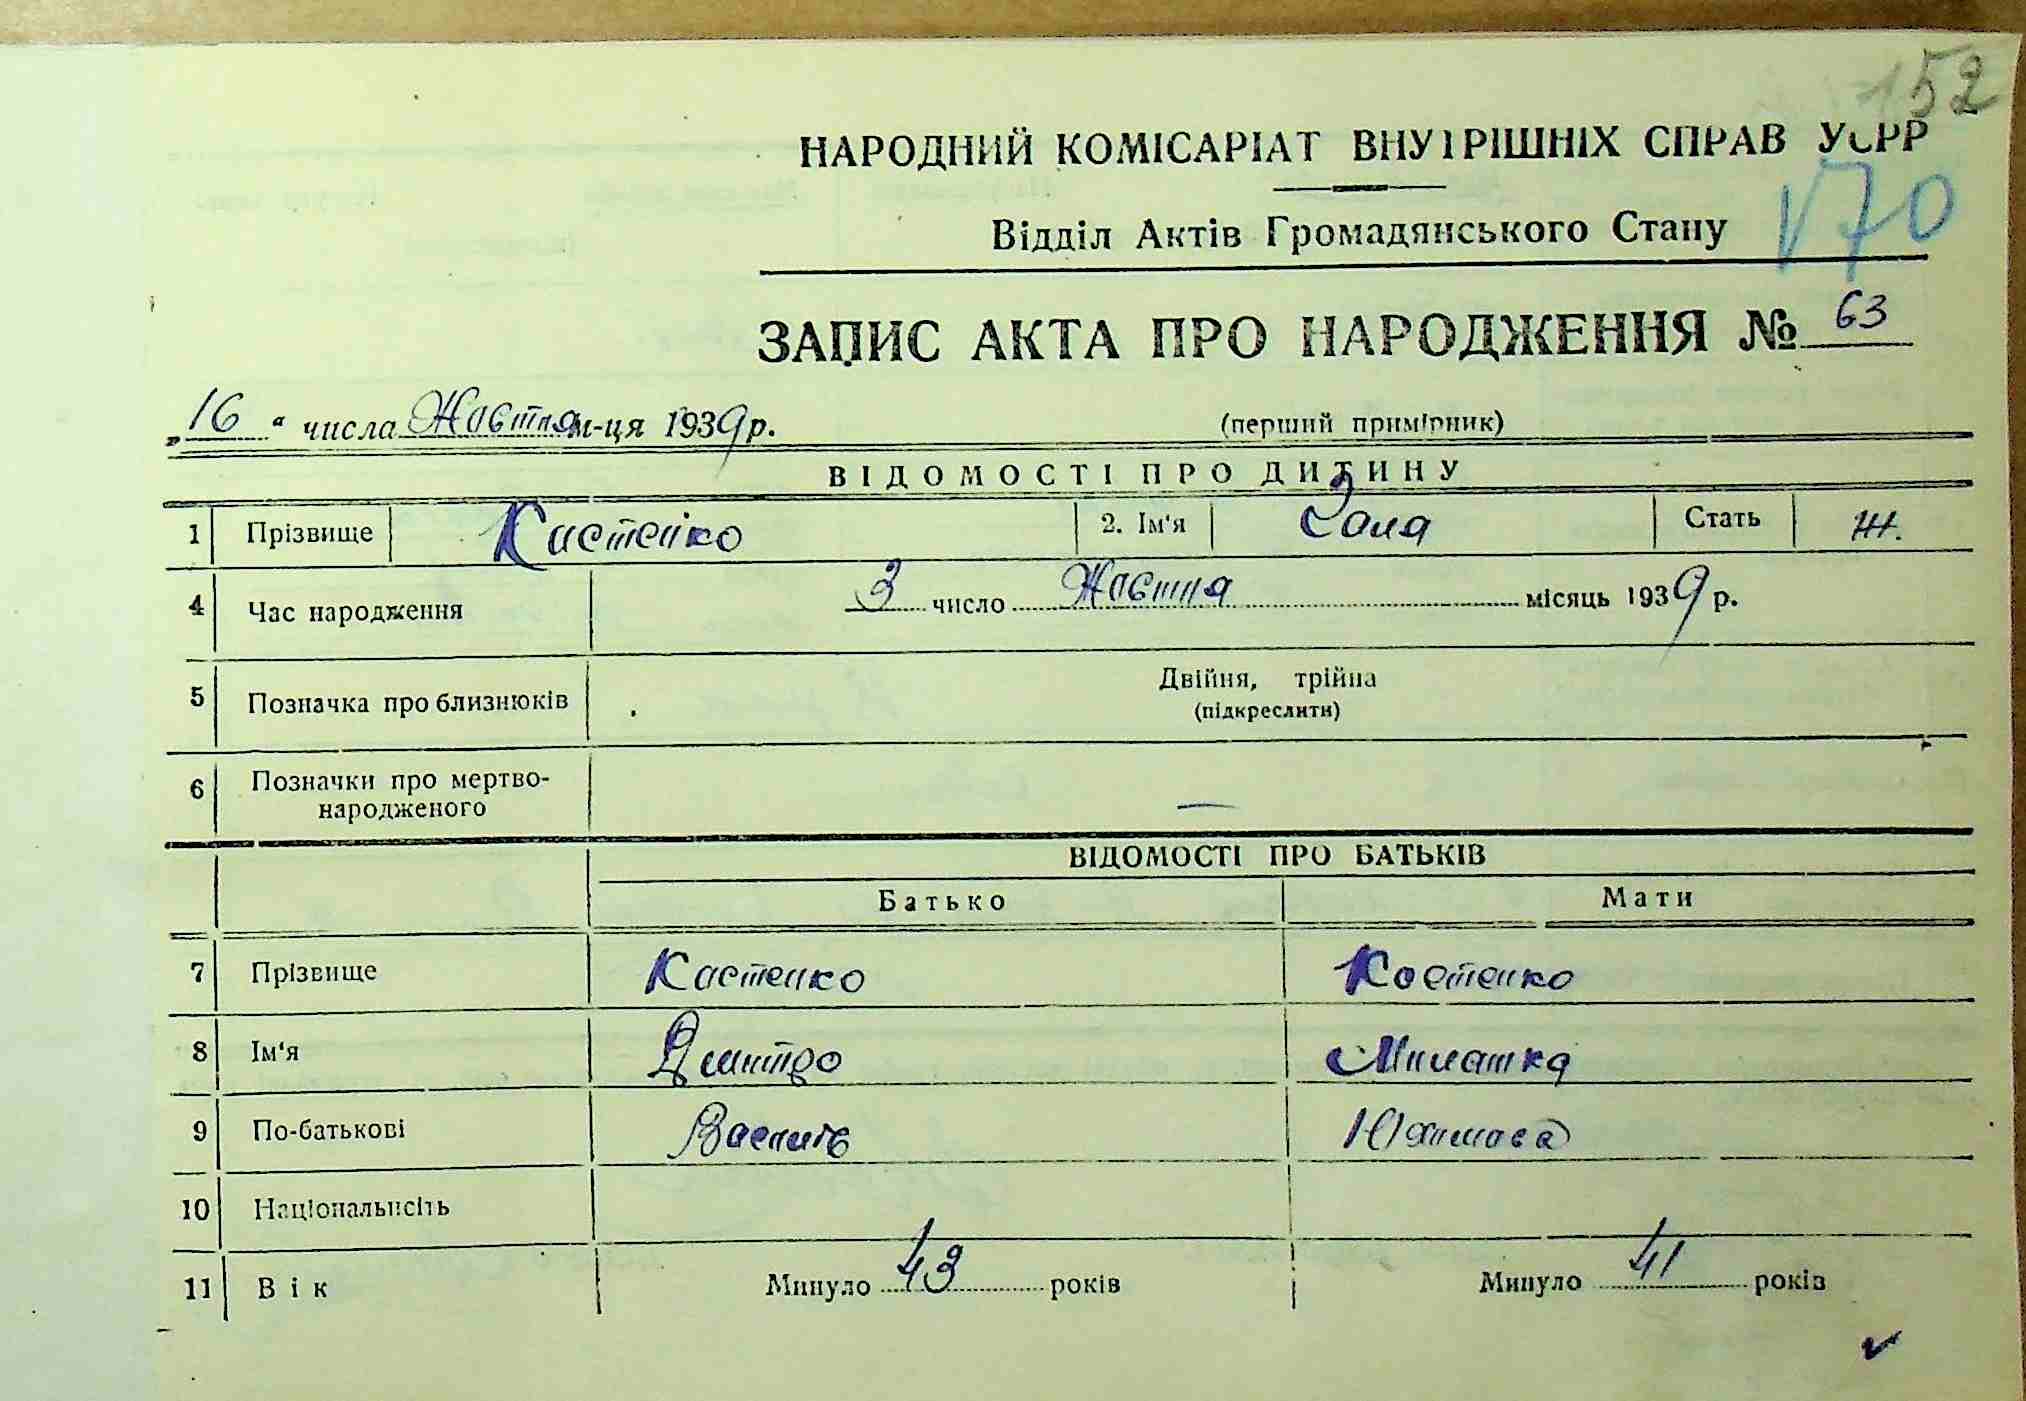 152
НАРОДНИЙ КОМІСАРІАТ ВНУТРІШНІХ СПРАВ УСРР
Відділ Актів Громадянського Стану
V70
ЗАПИС АКТА ПРО НАРОДЖЕННЯ № 63
„16“ числа Жовтня м-ця 1939 р. (перший примірник)
ВІДОМОСТІ ПРО ДИТИНУ
1 Прізвище Костенко 2. Ім'я Стать Ж.
4 Час народження 3 число Жовтня місяць 1939 р.
5 Позначка про близнюків Двійня, трійна
(підкреслити)
6 Позначки про мертво-
народженого —
ВІДОМОСТІ ПРО БАТЬКІВ
Батько Мати
7 Прізвище Костенко Костенко
8 Ім'я Дмитро
9 По-батькові Василів Юхимова
10 Національність
11 Вік Минуло 43 років Минуло 41 років